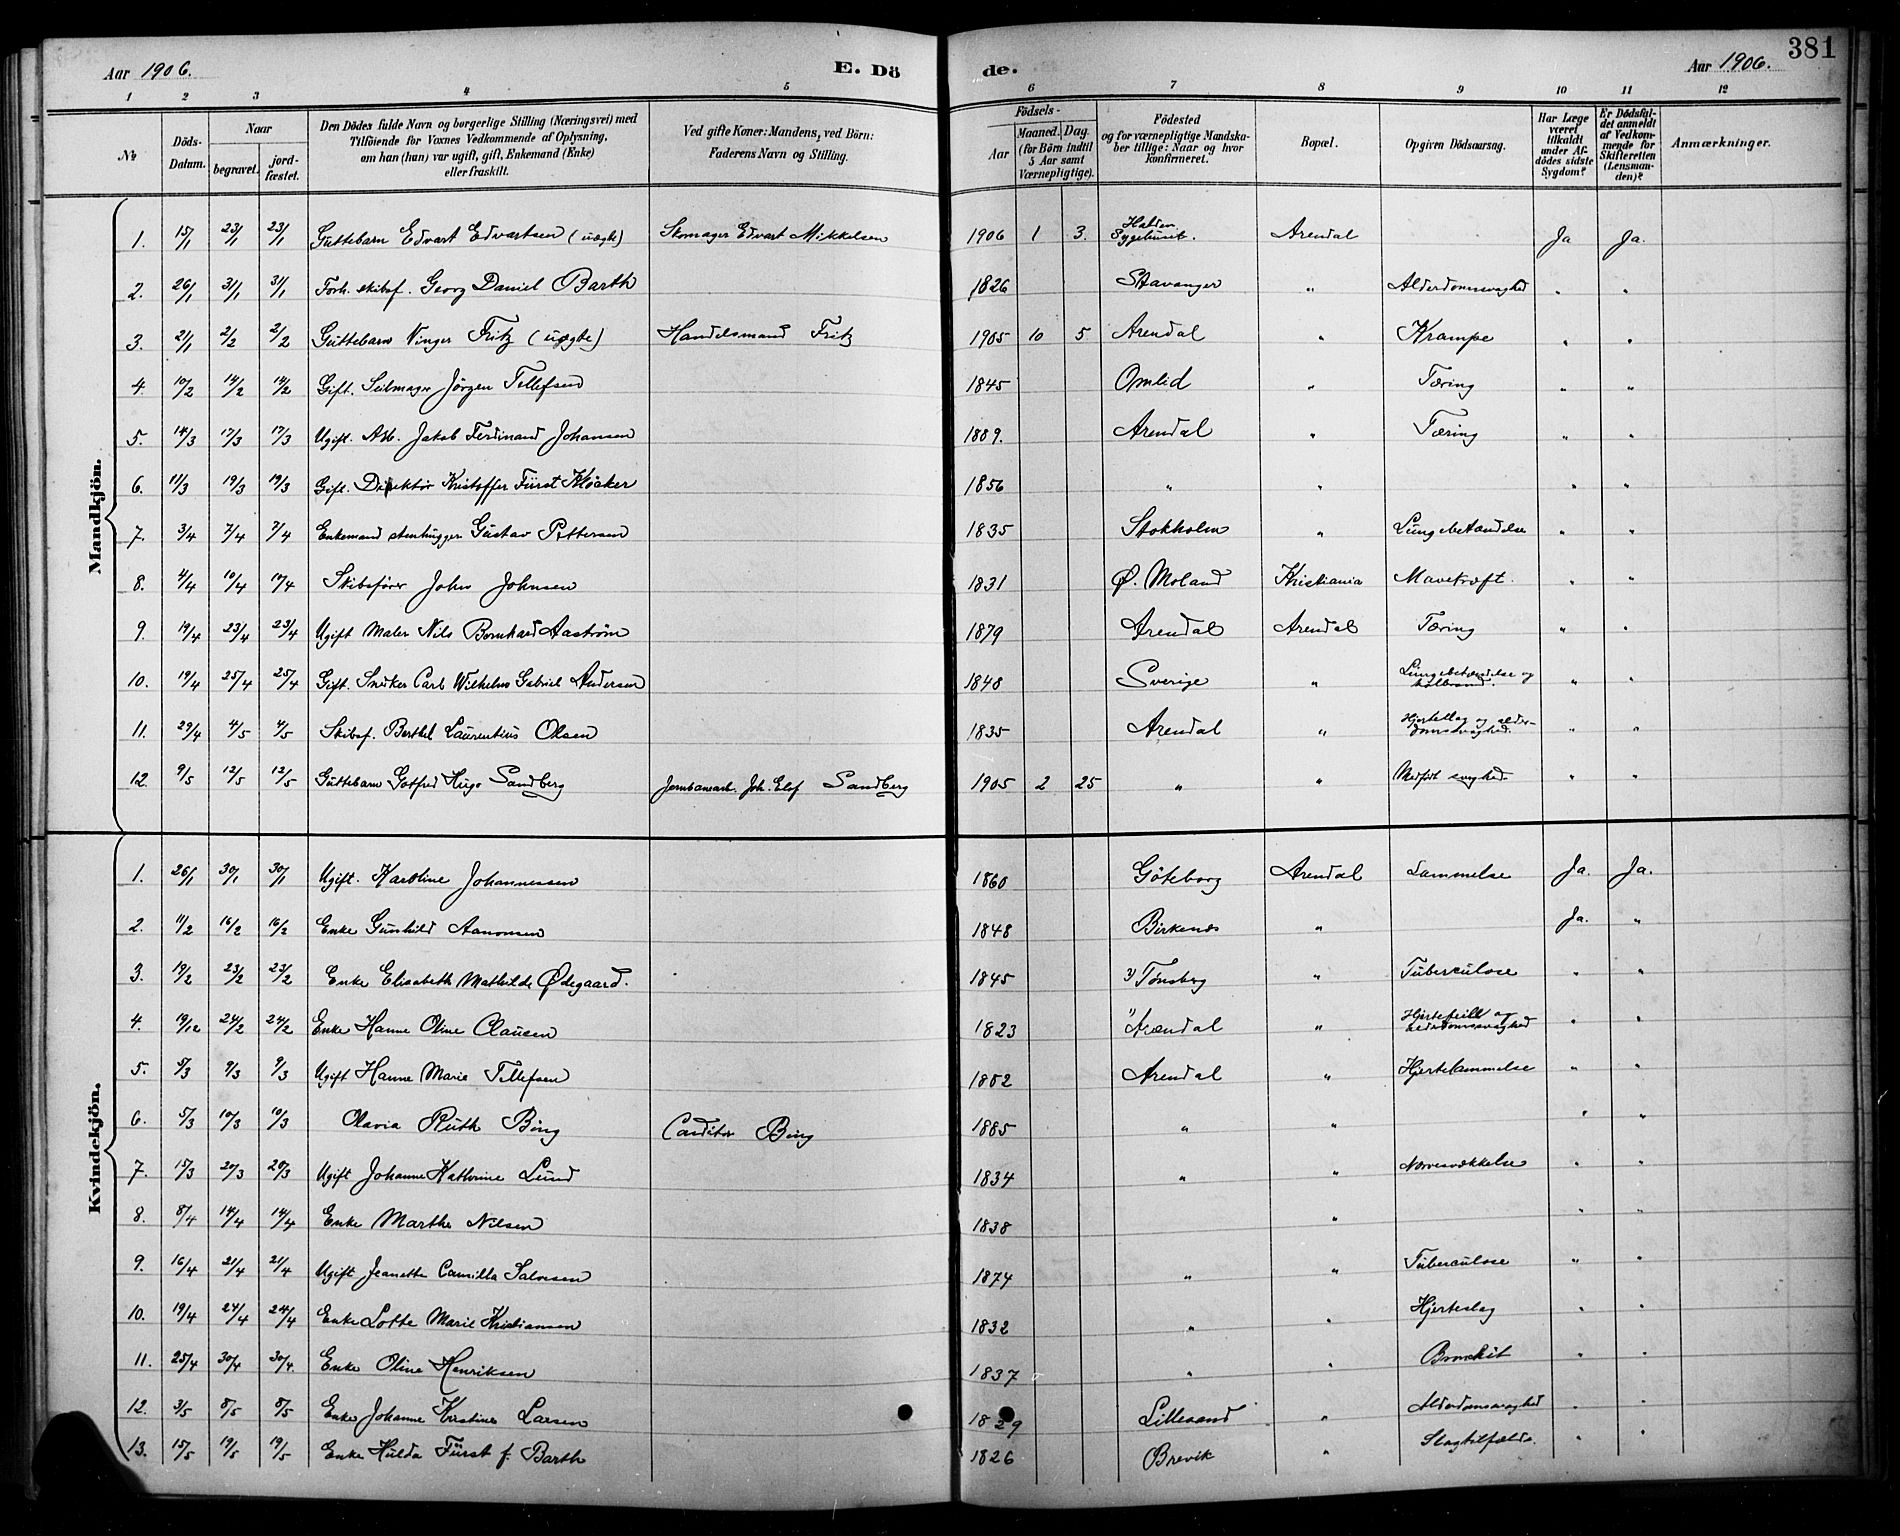 381
Aar 1906. E. Dö de. Aar 1906.
1 2 3 4 5 6 7 8 9 10 11 12
No
Döds-Datum.
Naar
begravet.
jord-fæstet.
Den Dödes fulde Navn og borgerlige Stilling (Næringsvei) med
Tilföiende for Voxnes Vedkommende af Oplysning,
om han (hun) var ugift, gift, Enkemand (Enke)
eller fraskilt.
Ved gifte Koner: Mandens, ved Börn:
Faderens Navn og Stilling.
Födsels-
Aar
Maaned. Dag.
(for Börn indtil
5 Aar samt
Værnepligtige).
Födested
og for værnepligtige Mandska-
ber tillige: Naar og hvor
konfirmeret.
Bopæl.
Opgiven Dödsaarsag.
Har Læge
været
tilkaldt
under Af-
dödes sidste
Sygdom?
Er Dödsfal-
det anmeldt
af Vedkom-
mende for
Skifteretten
(Lensman-
den)?
Anmærkninger.
Mandkjön.
1. 15/1 23/1 23/1 Guttebarn Edvart Edvartsen (uægte) Skomager Edvart Mikkelsen 1906 1 3. Halden Sygehuset. Arendal Ja Ja.
2. 26/1 31/1 31/1 Forh. skibsf. Georg Daniel Barth 1826 Stavanger " Alderdomssvaghed " "
3. 21/1 2/2 2/2 Guttebarn Vinger Fritz (uægte) Handelsmand Fritz 1905 10 5 Arendal " Krampe " "
4. 10/2 14/2 14/2 Gift. Seilmager Jörgen Tellefsen 1845 Omlid " Tæring " "
5. 14/3 17/3 17/3 Ugift. Arb. Jakob Ferdinand Johansen 1889. Arendal " Tæring " "
6. 11/3 19/3 19/3 Gift. Direktör Kristoffer Fürst Klöcker 1856 " " " "
7. 3/4 7/4 7/4 Enkemand stenhugger Gustav Pettersen 1835 Stokholm " Lungebetændelse " "
8. 4/4 10/4 10/4 Skibsförer John Johnsen 1831 Ø. Moland Kristiania Mavekræft. " "
9. 19/4 23/4 23/4 Ugift Maler Nils Bernhard Aaström 1879 Arendal Arendal Tæring " "
10. 19/4 25/4 25/4 Gift. Snéker Carl Wilhelm Gabriel Andersen 1848 Sverige " Lungebetændelse og koldbrand. " "
11. 29/4 4/5 4/5 Skibsf. Berthel Laurentius Olsen 1835 Arendal " Hjerteslag og alder-domssvaghed. " "
12. 9/5 12/5 12/5 Guttebarn Gotfred Hugo Sandberg Jernbanearb. Joh. Elof Sandberg 1905 2 25 " " Medfödt svaghed. " "
Kvindekjön.
1. 26/1 30/1 30/1 Ugift. Karoline Johannessen 1860 Göteborg Arendal Lammelse Ja. Ja.
2. 11/2 16/2 16/2 Enke Gunhild Aanonsen 1848 Birkenes " Ja. "
3. 19/2 23/2 23/2 Enke Elisabeth Mathilde Ødegaard. 1845 Tönsberg " Tuberculose " "
4. 19/12 24/2 24/2 Enke Hanne Oline Clausen 1823 Arendal " Hjertefeil og alderdomssvaghed " "
5. 5/3 9/3 9/3 Ugift Hanne Marie Tellefsen 1882 Arendal " Hjertelammelse " "
6. 5/3 10/3 10/3 Olavia Ruth Bing Conditor Bing 1885 " " " "
7. 15/3 20/3 20/3 Ugift Johanne Kathrine Lund 1834 " " Nervesvækkelse " "
8. 8/4 14/4 14/4 Enke Marthe Nilsen 1838 " " "
9. 16/4 21/4 21/4 Ugift Jeanette Camilla Salvesen 1874 " " Tuberculose " "
10. 19/4 24/4 24/4 Enke Lotte Marie Kristiansen 1832 " " Hjerteslag " "
11. 25/4 30/4 30/4. Enke Oline Henriksen 1837 " " Bronchit " "
12. 3/5 8/5 8/5 Enke Johanne Kristine Larsen 1829 Lillesand " Alderdomssvaghed " "
13. 15/5 19/5 19/5 Enke Hulda Fürst f. Barth 1826 Brevik " Slagtilfælde. " "